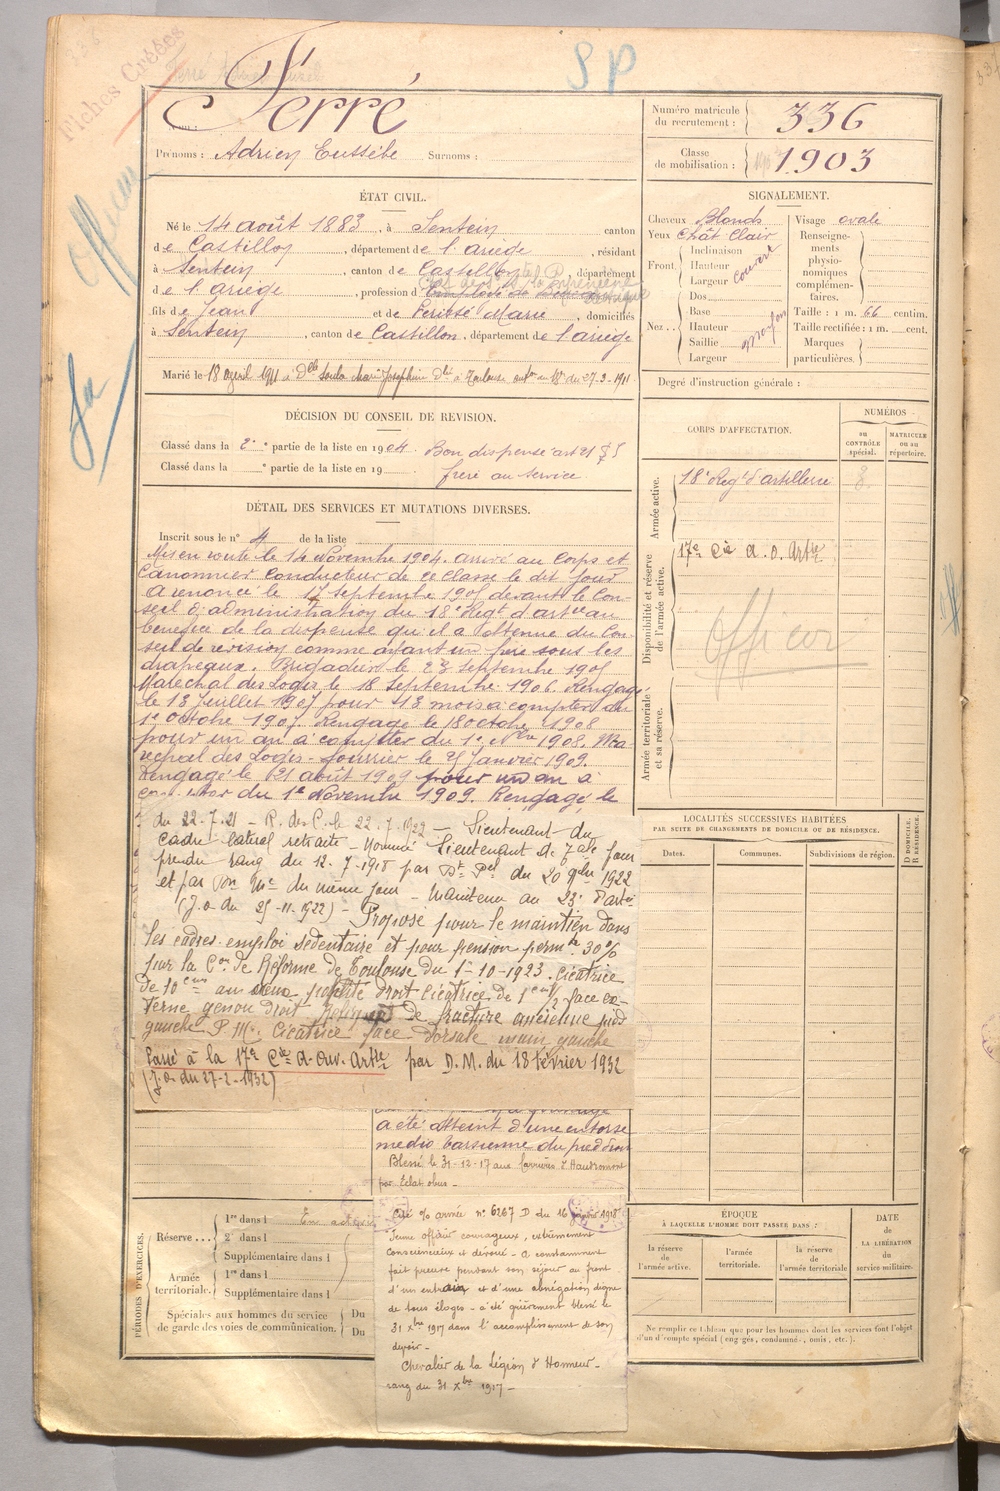 Fiches Créées
SP
Ferré
Nom :
Prénoms : Adrien Eusèbe Surnoms :
Numéro matricule du recrutement : 336
Classe de mobilisation : 1903
ÉTAT CIVIL.
Né le 14 août 1883, à Sentein canton
de Castillon, département de l'ariège, résidant
à Sentein, canton de Castillon, département
de l'ariège, profession d
fils de Jean et de Péritié Marie, domiciliés
à Sentein, canton de Castillon, département de l'ariège
Marié le 18 avril 1911 à Dlle Soula Marie Josephine à Toulouse du 27-3-1911
SIGNALEMENT.
Cheveux Blonds
Yeux Chât Clair
Front. Inclinaison
Hauteur
Largeur
couvert
Nez... Dos
Base
Hauteur
Saillie
Largeur
moyen
Visage ovale
Renseignements physionomiques complémentaires.
Taille : 1 m. 66 centim.
Taille rectifiée : 1 m. cent.
Marques particulières.
Degré d'instruction générale :
DÉCISION DU CONSEIL DE REVISION.
Classé dans la 2e partie de la liste en 1904. Bon dispensé art 21
Classé dans la e partie de la liste en 19 frère au service
CORPS D'AFFECTATION.
NUMÉROS
au CONTRÔLE spécial.
MATRICULE ou au répertoire.
Armée active.
18e Regt d'artillerie
Disponibilité et réserve de l'armée active.
17e Cie d.O. Artie
Officier
Armée territoriale et sa réserve.
DÉTAIL DES SERVICES ET MUTATIONS DIVERSES.
Inscrit sous le n° 4 de la liste
Mis en route le 14 Novembre 1904. arrivé au Corps et
Canonnier Conducteur de 2e classe le dit jour
A renoncé le 17 Septembre 1905 devant le Con-
seil d'administration du 18e Regt d'artie au
bénéfice de la dispense qu'il a obtenue du Con-
seil de revision comme ayant un frère sous les
drapeaux. Brigadier le 23 Septembre 1905
Maréchal des Logis le 18 Septembre 1906. Rengagé
le 13 Juillet 1907 pour 18 mois à compter du
1er octobre 1907. Rengagé le 18 octobre 1908
pour un an à compter du 1er Nbre 1908. Ma-
réchal des Logis-fourrier le 25 Janvier 1909.
Rengagé le 21 août 1909 pour un an à
compter du 1er Novembre 1909. Rengagé le
du 22.7.21 - R. des C. le 22.7.1922 - Lieutenant du
cadre latéral retraité - nommé Lieutenant de pour
prendre rang du 12.7.1918 par Dt Pel du 20 9bre 1922
et par Don Mle du même jour - Maintenu au 23e d'artie
(J.O. du 25-11-1922) - Proposé pour le maintien dans
les cadres, emploi sédentaire et pour pension permte 30%
par la Con de Réforme de Toulouse du 1er-10-1923. Cicatrice
de 10 cm au creux poplité droit Cicatrice de 1 cm 1/2 face ex-
terne genou droit de fracture ancienne pied
gauche P.M. Cicatrice face dorsale main gauche
Passé à la 17e Cie d'Ouv. Artie par D.M. du 18 février 1932
(J.O. du 27-2-1932)
A été atteint d'une entorse
médio tarsienne du pied droit
Blessé le 31-12-17 aux Carrières d'Haudromont
par Eclat obus -
Cité % armée n° 6267 D du 16 janvier 1918
Jeune officier courageux, extrêmement
consciencieux et dévoué - a constamment
fait preuve pendant son séjour au front
d'un entrain et d'une abnégation digne
de tous éloges - a été grièvement blessé le
31 Xbre 1917 dans l'accomplissement de son
devoir -
Chevalier de la Légion d'Honneur -
rang du 31 Xbre 1917 -
LOCALITÉS SUCCESSIVES HABITÉES
PAR SUITE DE CHANGEMENTS DE DOMICILE OU DE RÉSIDENCE.
Dates. Communes. Subdivisions de région. D DOMICILE. R RÉSIDENCE.
PÉRIODES D'EXERCICES.
Réserve... 1re dans l
2e dans l
Supplémentaire dans l
Armée territoriale. 1re dans l
Supplémentaire dans l
Spéciales aux hommes du service de garde des voies de communication. Du
Du
ÉPOQUE
À LAQUELLE L'HOMME DOIT PASSER DANS :
la réserve de l'armée active.
l'armée territoriale.
la réserve de l'armée territoriale
DATE de LA LIBÉRATION du service militaire.
Ne remplir ce tableau que pour les hommes dont les services font l'objet
d'un décompte spécial (engagés, condamnés, omis, etc.).